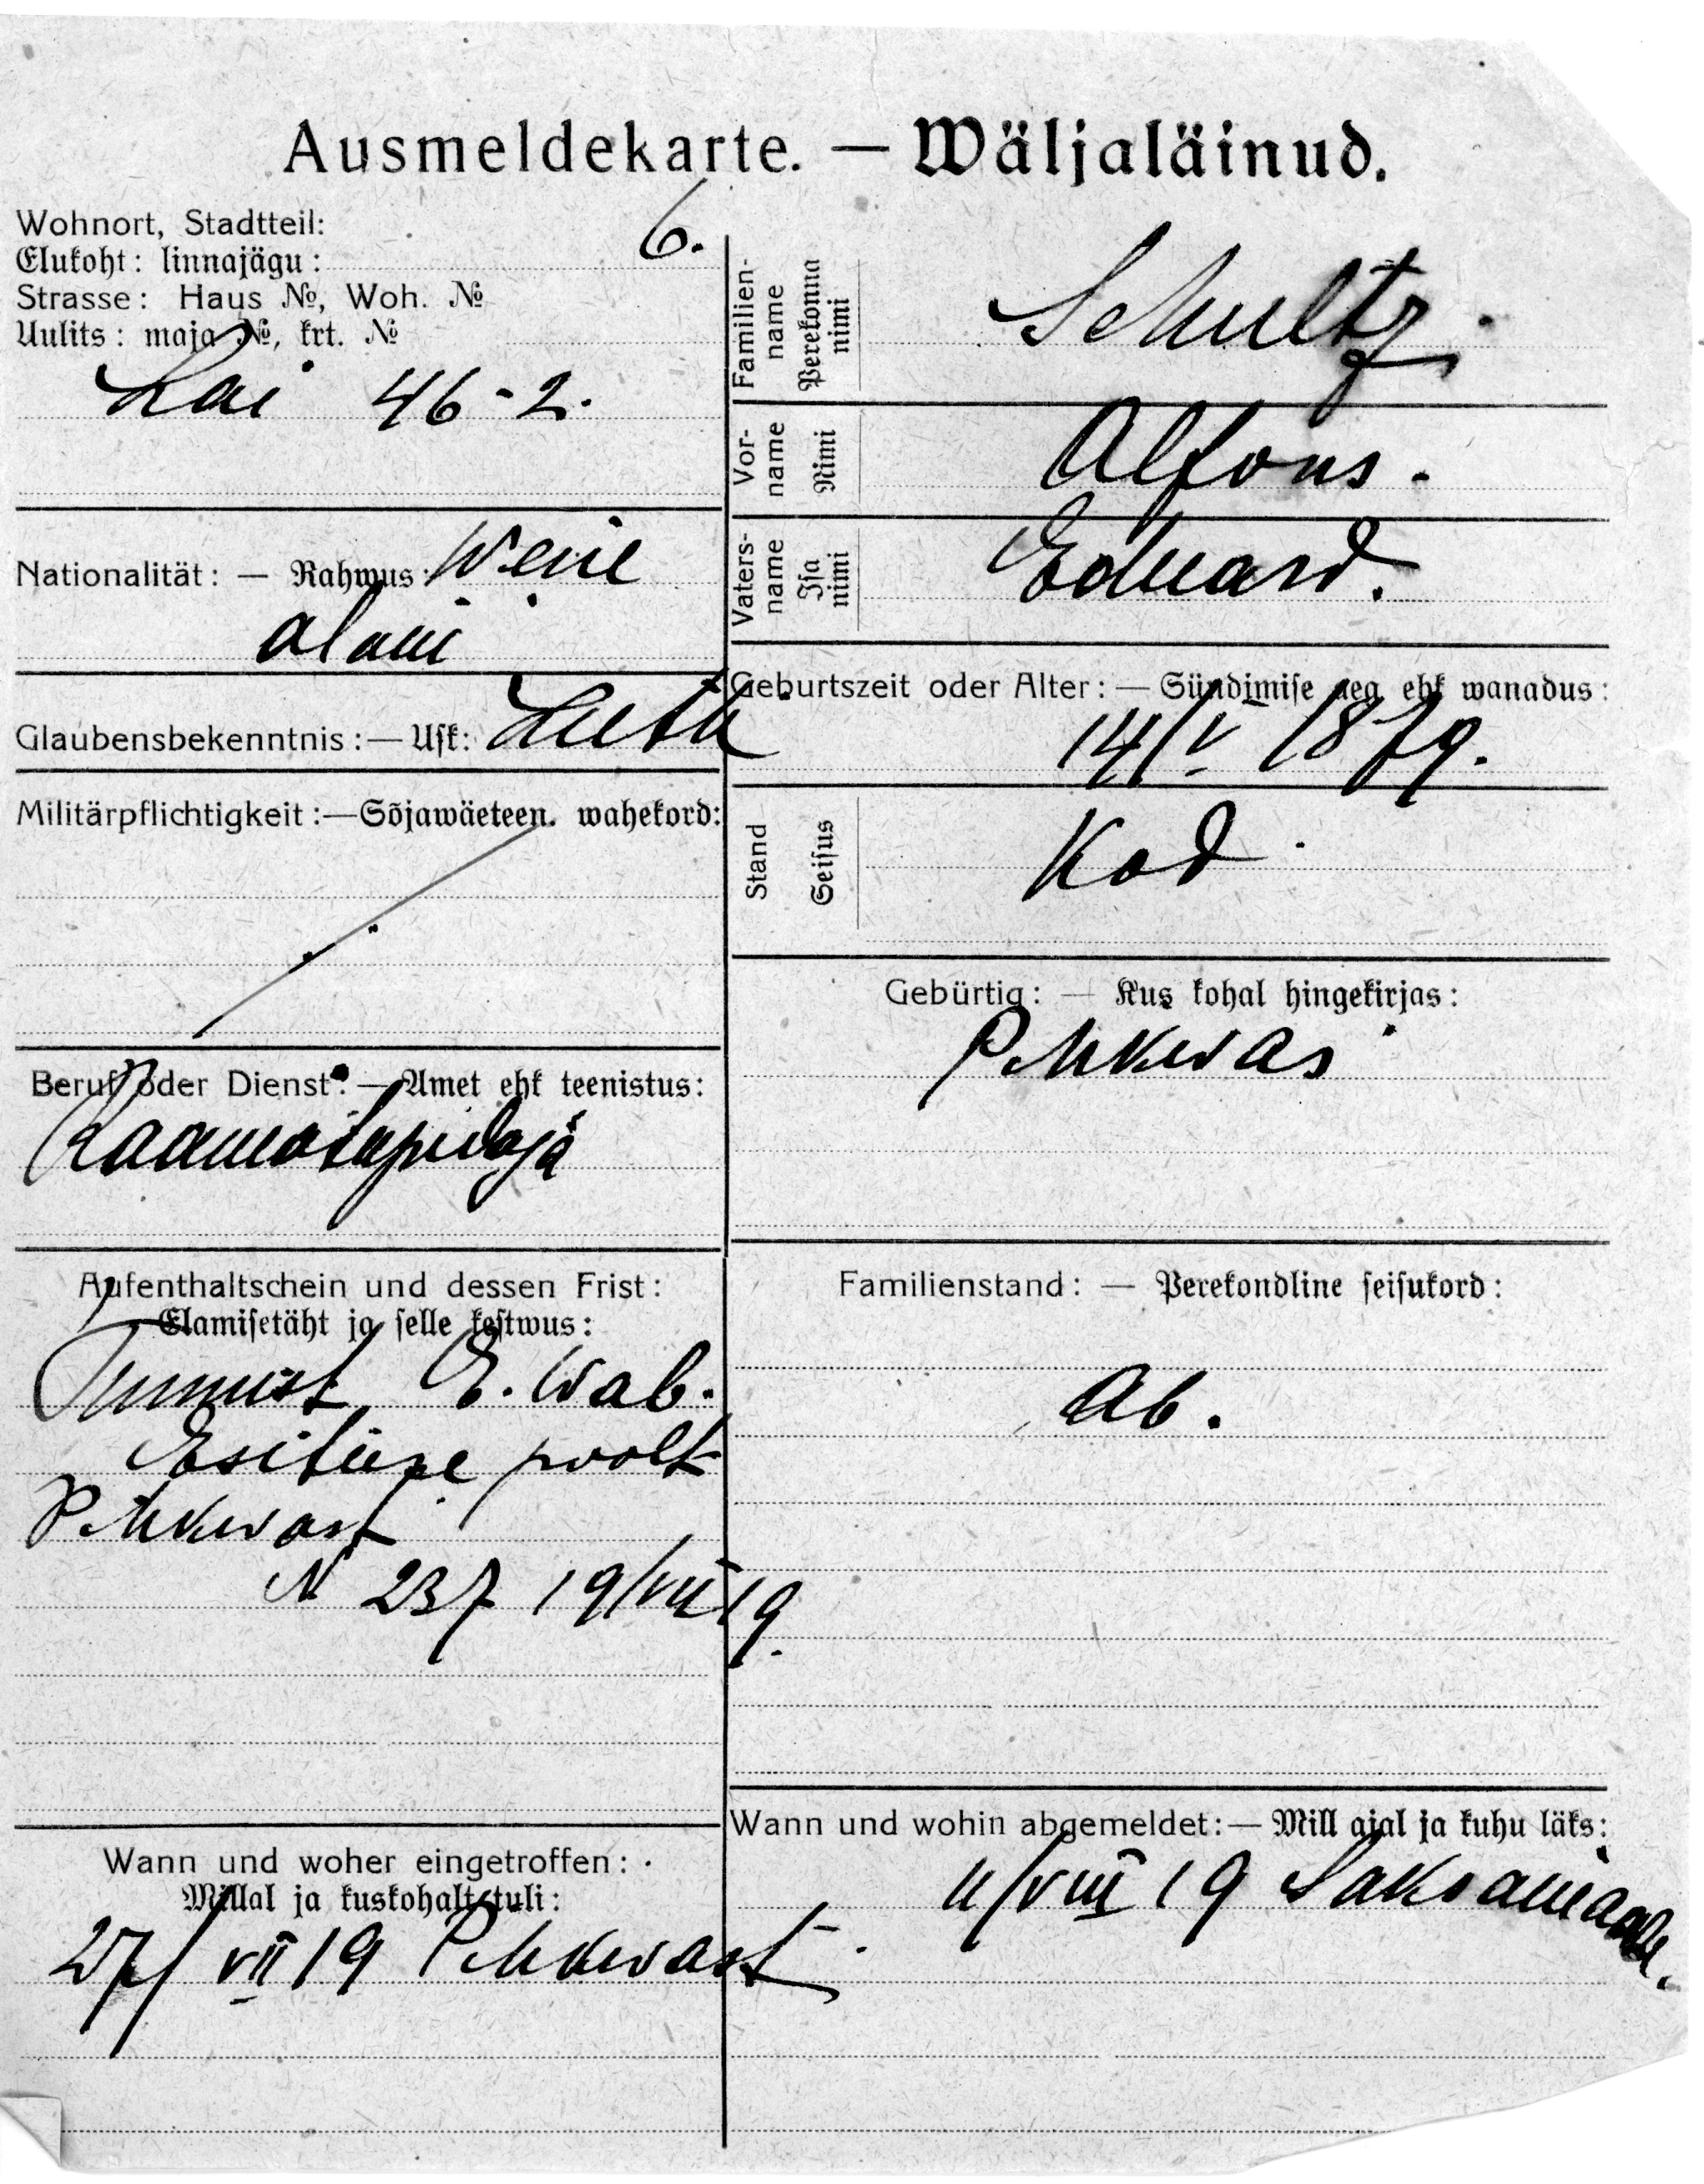 Ausmeldekarte. — Wäljaläinud.
6.
Wohnort, Stadtteil:
Elukoht: linnajägu:
Strasse: Haus №, Woh. №
Uulits: maja №, krt. №
Lai 46-2.
Nationalität: — Rahwus: Wene
alam
Glaubensbekenntnis:— Usk: Luth
Militärpflichtigkeit:—Sõjawäeteen. wahekord:
Beruf oder Dienst: — Amet ehk teenistus:
Raamatupidaja
Aufenthaltschein und dessen Frist:
Elamisetäht ja selle kestwus:
Tunnist E. Wab.
Esitüse poolt
Pihkwast
N 237 19/VII 19.
Wann und woher eingetroffen:
Millal ja kuskohalt tuli:
27/VII 19 Pihkwast.
Familien-
name
Perekonna
nimi
Schultz.
Vor-
name
Nimi
Alfons.
Vaters-
name
Isa
nimi
Eduard.
Geburtszeit oder Alter: — Sündimise aeg ehk wanadus:
14/V 1879.
Stand
Seisus
Kod.
Gebürtig: — Kus kohal hingekirjas:
Pihkwas
Familienstand: — Perekondline seisukord:
Ab.
Wann und wohin abgemeldet:— Mill ajal ja kuhu läks:
11/VIII 19 Saksamaale.